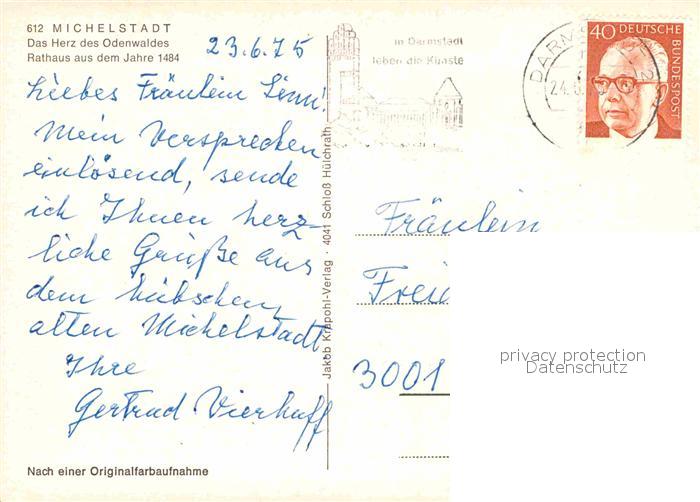 612 MICHELSTADT
Das Herz des Odenwaldes
Rathaus aus dem Jahre 1484
23.6.75
Liebes Fräulein
Mein Versprechen
einlösend, sende
ich Ihnen herz-
liche Grüße aus
dem hübschen,
alten Michelstadt
Ihre
Gertrud Vierhuff
Nach einer Originalfarbaufnahme
Jakob Krapohl-Verlag · 4041 Schloß Hülchrath
in Darmstadt
leben die Künste
DARMS
24.6.
2
40 DEUTSCHE
BUNDESPOST
Fräulein
3001
privacy protection
Datenschutz